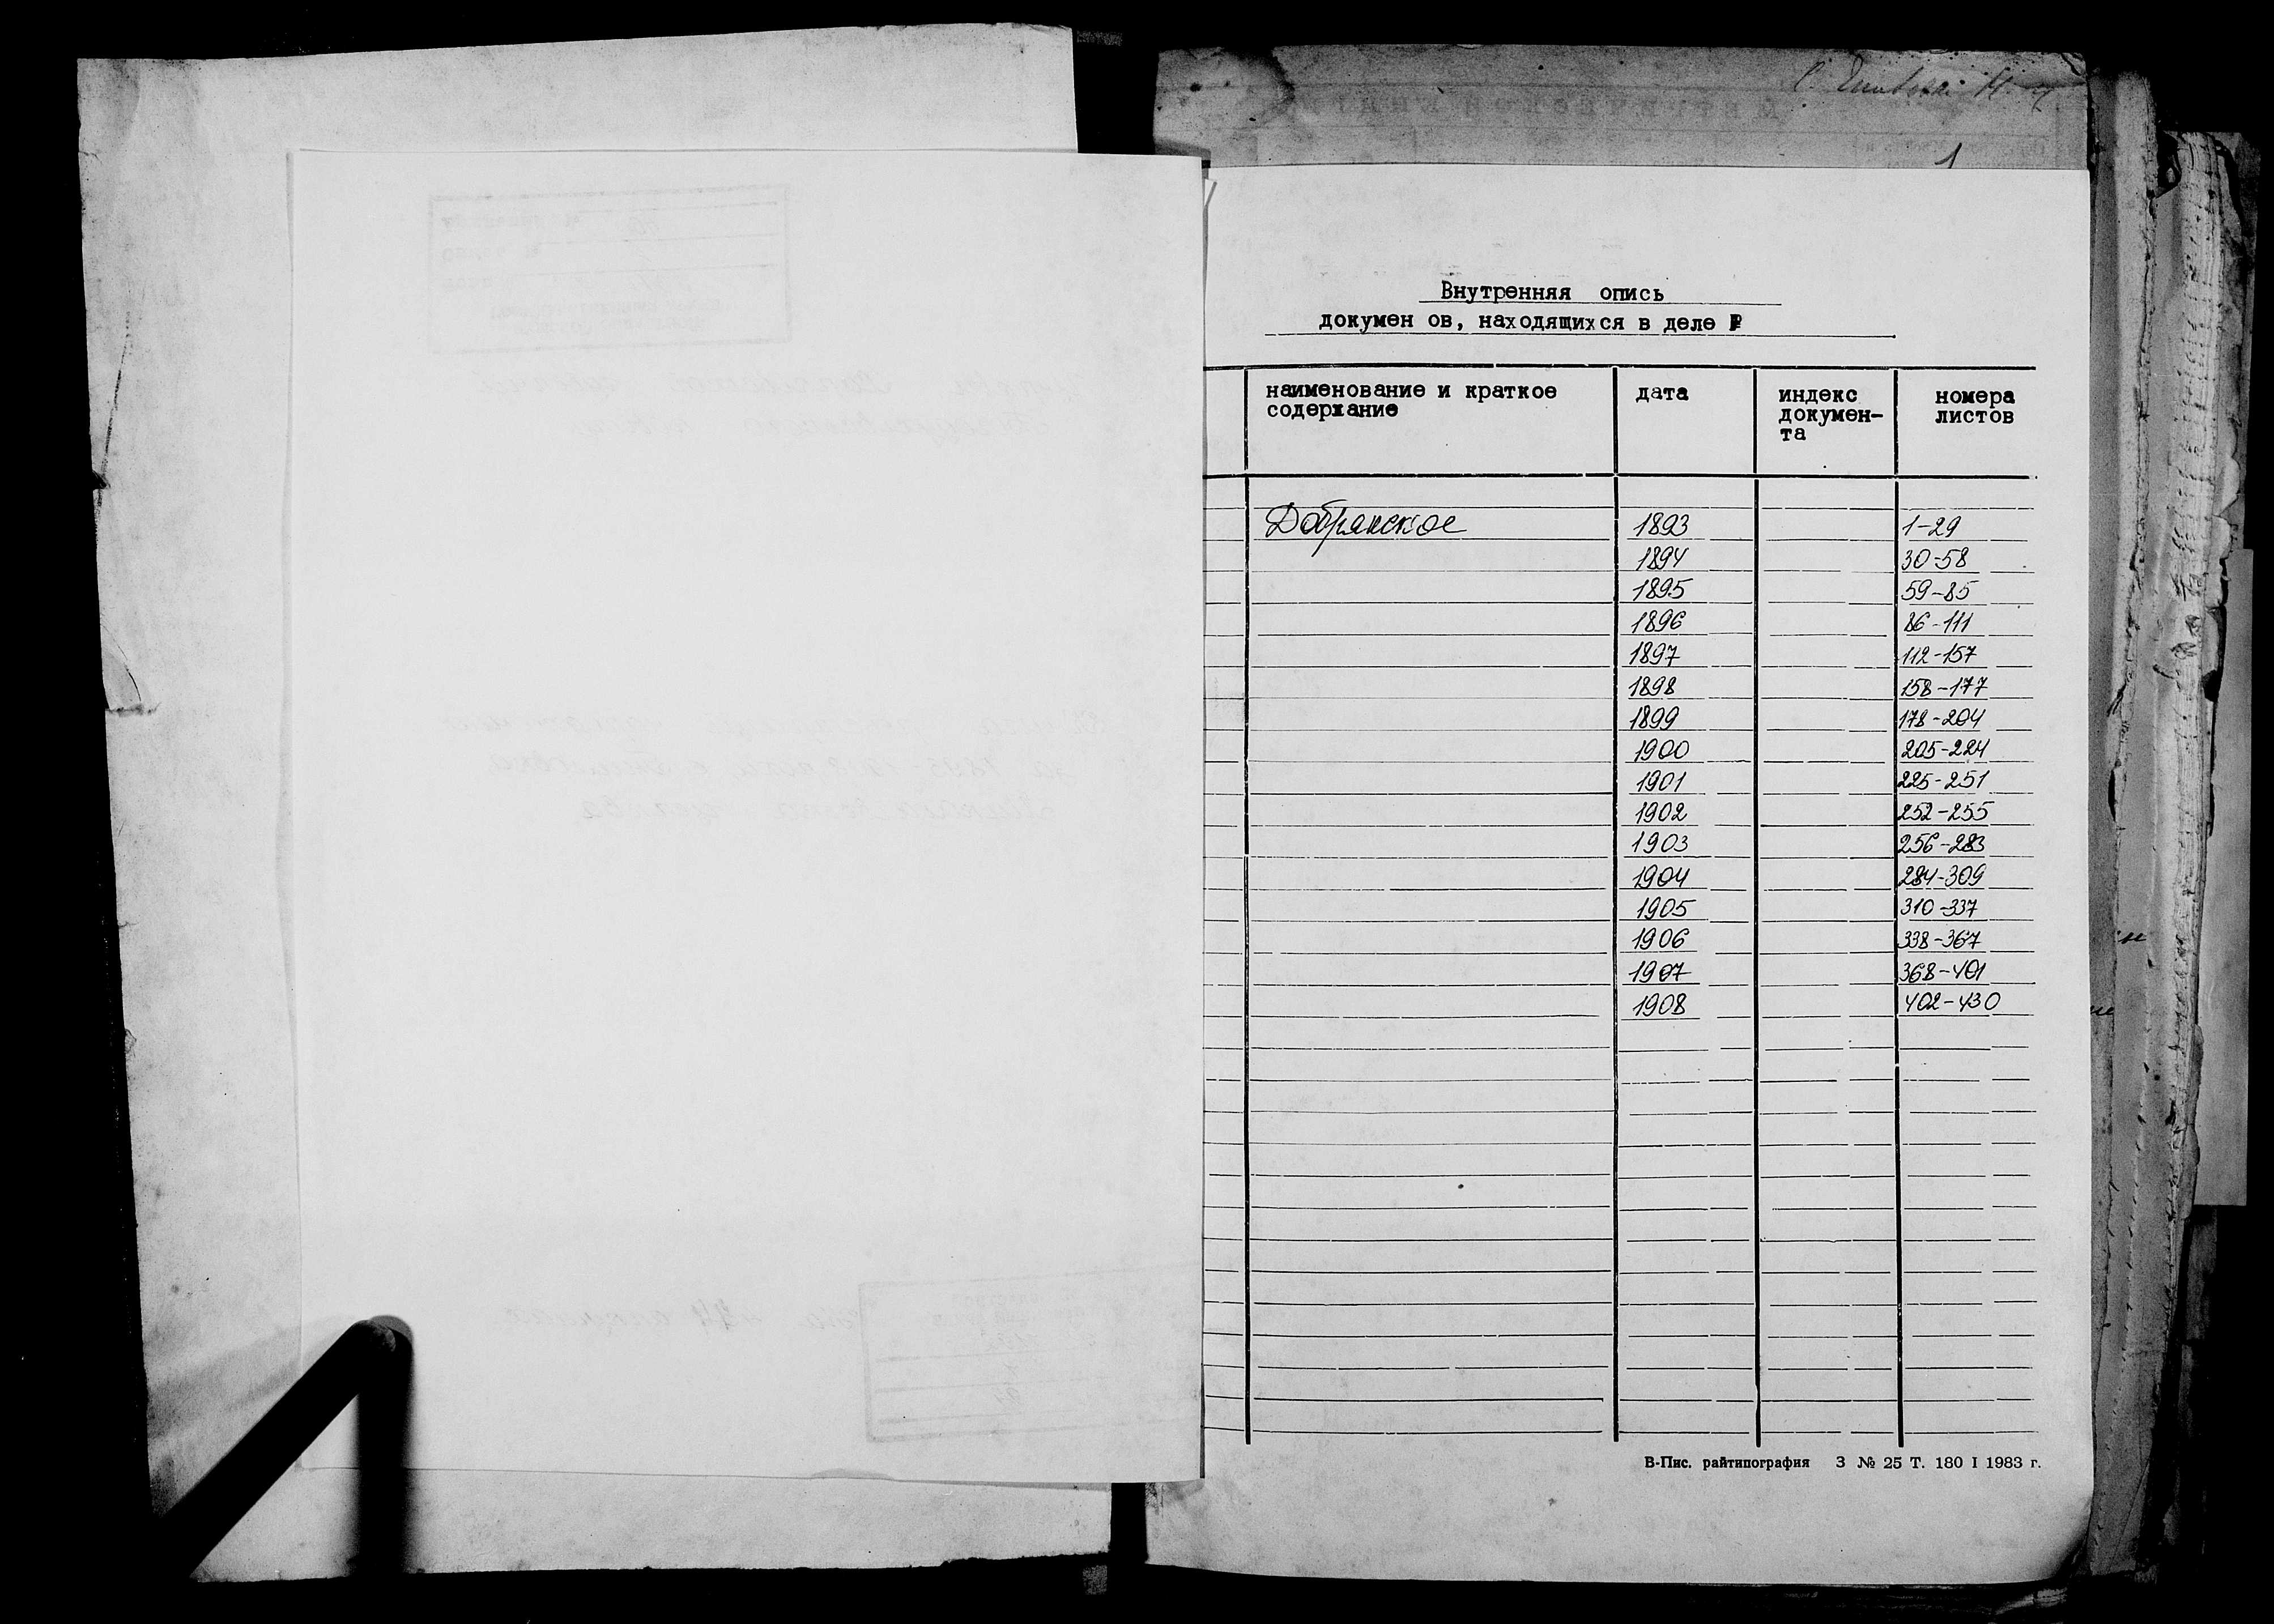 1
Внутренняя опись
докумен ов, находящихся в деле №
наименование и краткое содержание дата индекс докумен- та номера листов
Добрянское 1893 1-29
1894 30-58
1895 59-85
1896 86-111
1897 112-157
1898 158-177
1899 178-204
1900 205-224
1901 225-251
1902 252-255
1903 256-283
1904 284-309
1905 310-337
1906 338-367
1907 368-401
1908 402-430
В-Пис. райтипография З № 25 Т. 180 I 1983 г.